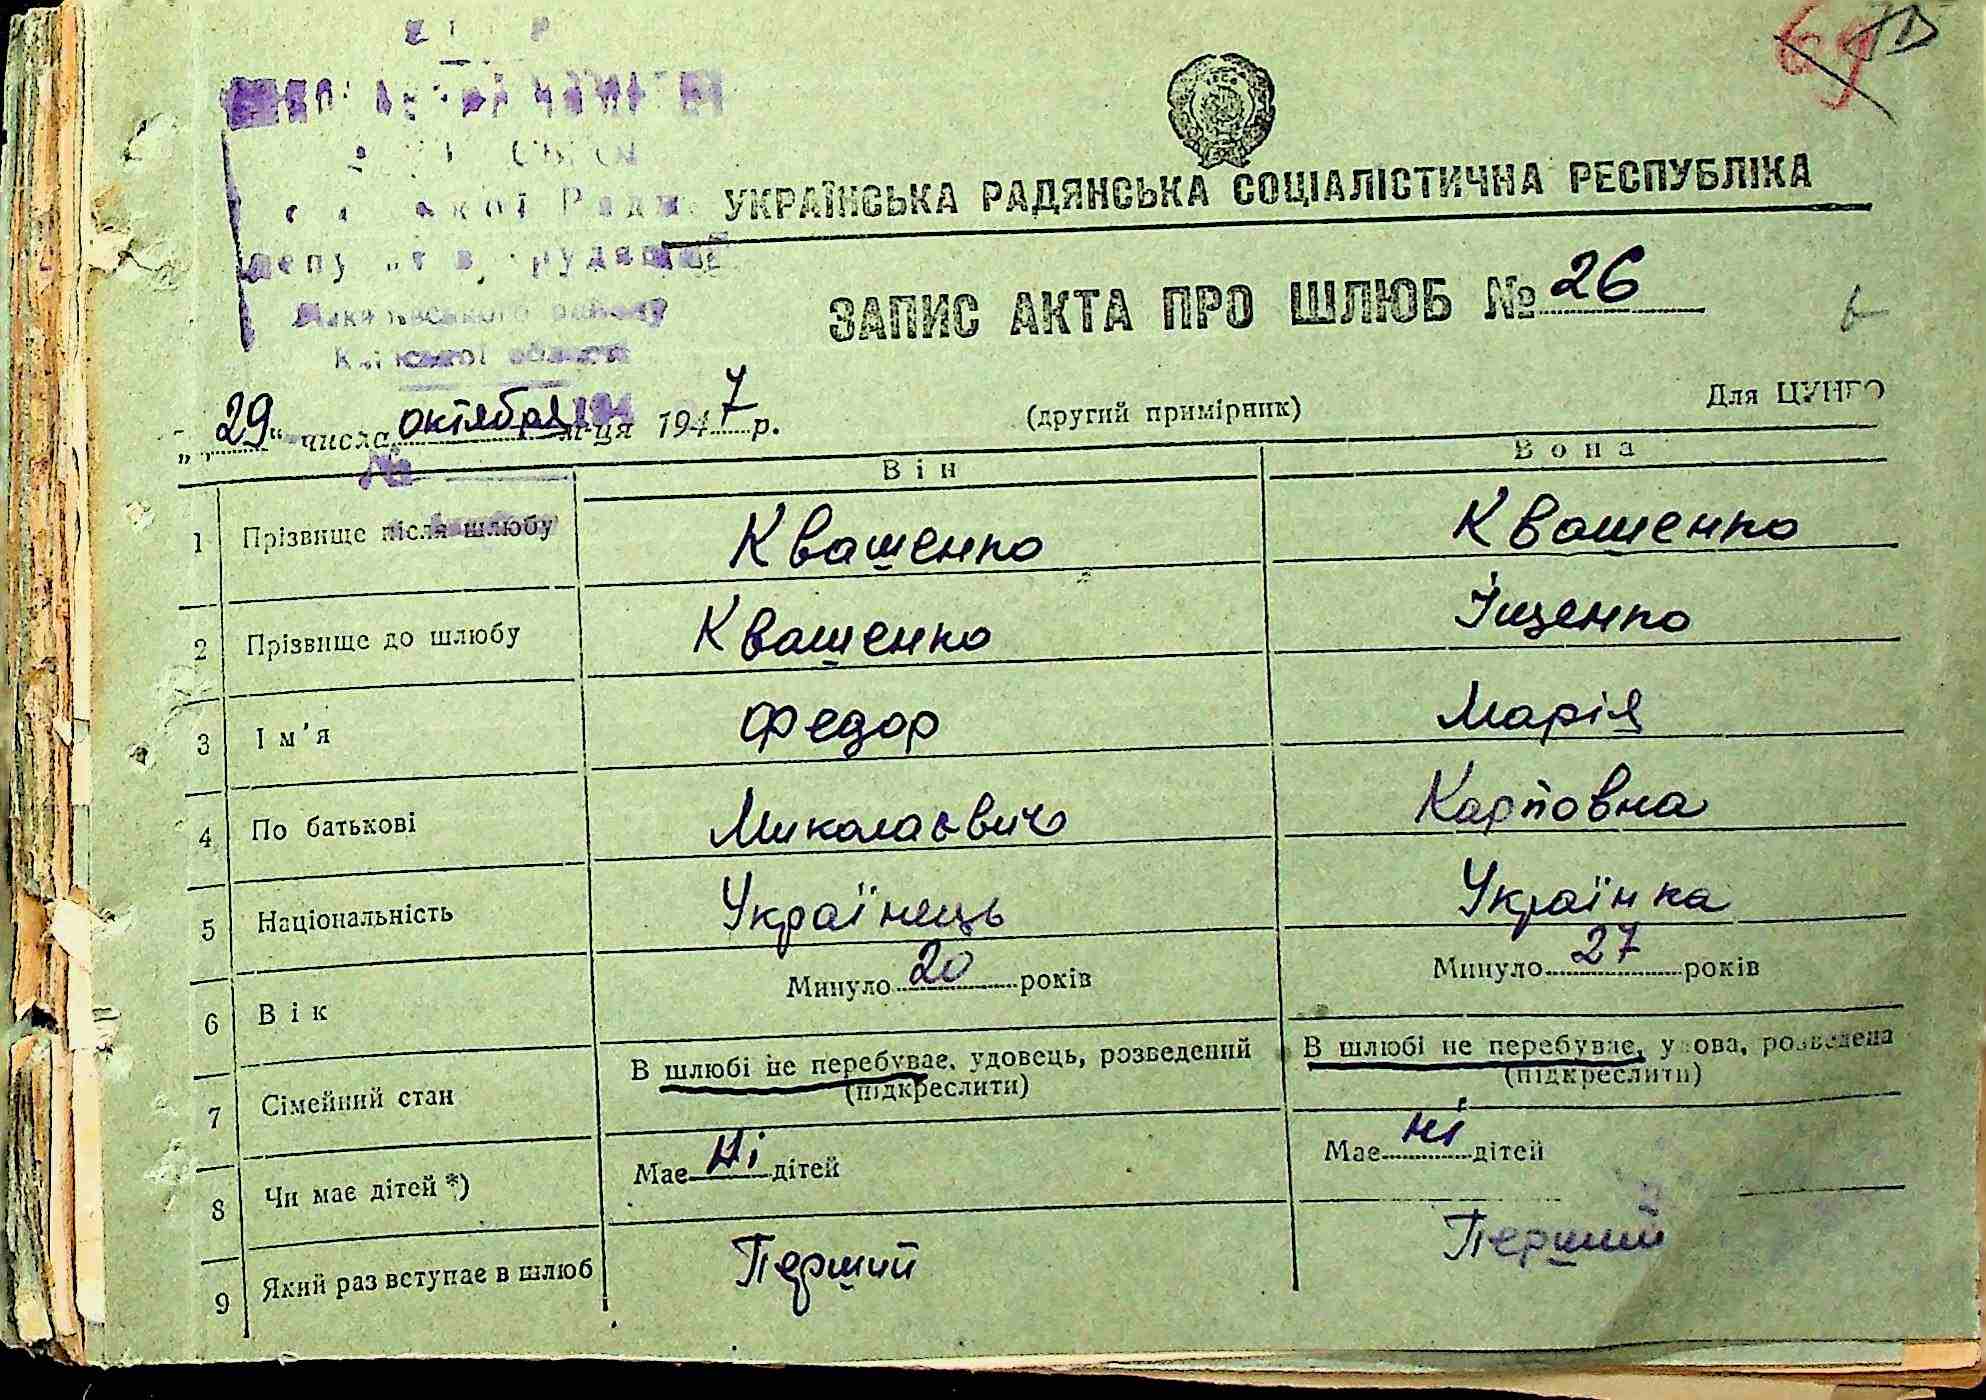 69
УКРАЇНСЬКА РАДЯНСЬКА СОЦІАЛІСТИЧНА РЕСПУБЛІКА
ЗАПИС АКТА ПРО ШЛЮБ № 26
району
області
„29“ числа октября м-ця 1947 р.
(другий примірник)
Для ЦУНГО
№
Він Вона
1 Прізвище після шлюбу Квашенко Квашенко
2 Прізвище до шлюбу Квашенко Іщенко
3 Ім'я Федор Марія
4 По батькові Миколаєвич Карповна
5 Національність Українець Українка
6 Вік Минуло 20 років Минуло 27 років
7 Сімейний стан В шлюбі не перебуває, удовець, розведений В шлюбі не перебуває, удова, розведена
(підкреслити) (підкреслити)
8 Чи має дітей *) Має Ні дітей Має ні дітей
9 Який раз вступає в шлюб Перший Перший